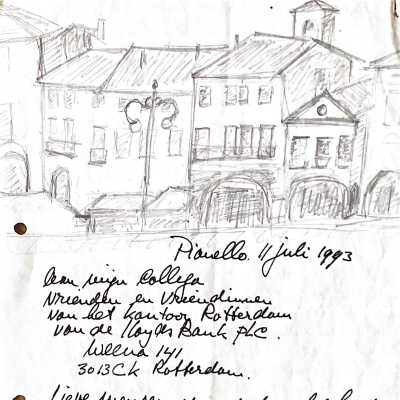 Pianello. 11 juli 1993
Aan mijn Collega
Vrienden en Vriendinnen
van het kantoor Rotterdam
van de Lloyds Bank PLC.
Weena 141
3013CK Rotterdam.
Lieve mensen